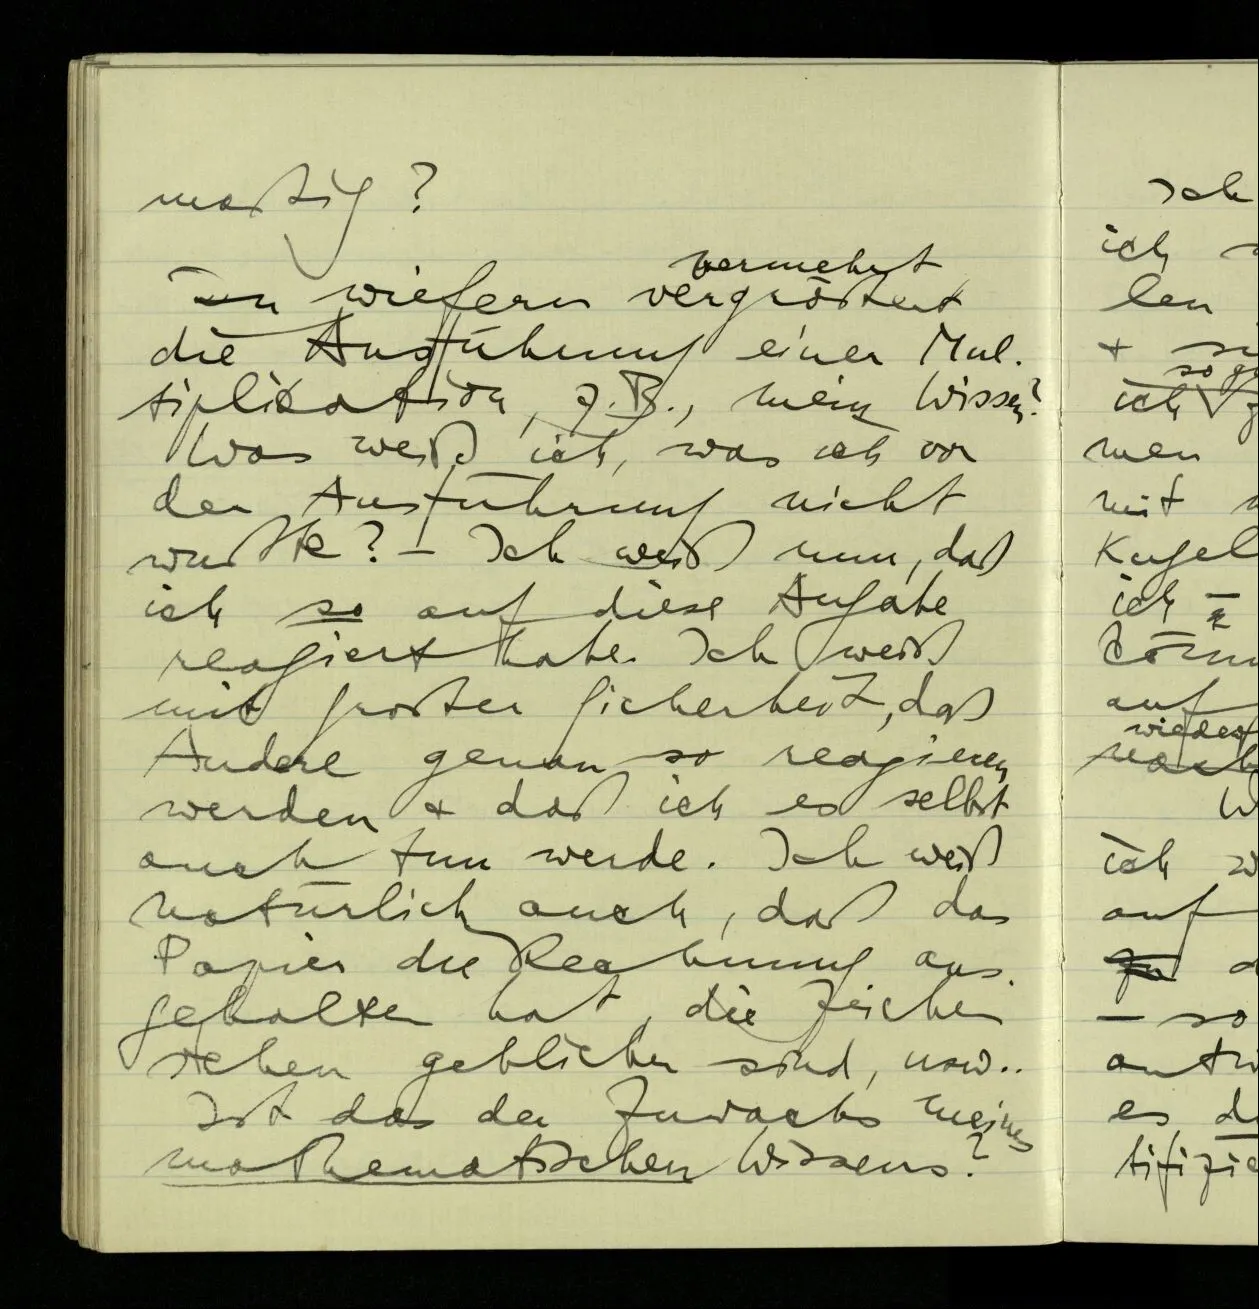 maßig?
In wiefern vergrößert vermehrt
die Ausführung einer Mul-
tiplikation, z.B., mein Wissen?
Was weiß ich, was ich vor
der Ausführung nicht
wußte? – Ich weiß nun, daß
ich so auf diese Aufgabe
reagiert habe. Ich weiß
mit großter Sicherheit, daß
Andere genau so reagieren
werden & daß ich es selbst
auch tun werde. Ich weiß
natürlich auch, daß das
Papier die Rechnung aus-
gehalten hat, die Zeichen
stehen geblieben sind, usw..
Ist das der Zuwachs meines
mathematischen Wissens?
Ich
ich
len
+
so
ich
men
mit
Kugel
ich –
auf
wieder
W
ich
auf
– so
antw
es d
tifizie